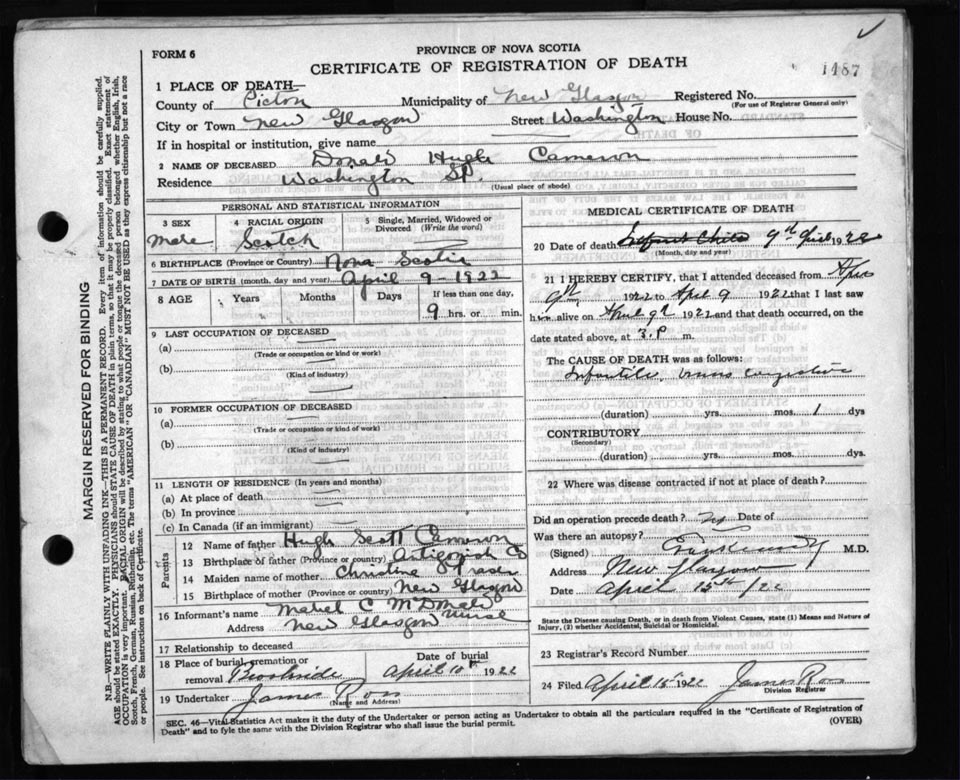 FORM 6
PROVINCE OF NOVA SCOTIA
CERTIFICATE OF REGISTRATION OF DEATH
1487
1 PLACE OF DEATH—
County of Pictou Municipality of New Glasgow Registered No.
(For use of Registrar General only)
City or Town New Glasgow Street Washington House No.
If in hospital or institution, give name
2 NAME OF DECEASED Donald Hugh Cameron
Residence Washington St.
(Usual place of abode)
PERSONAL AND STATISTICAL INFORMATION
3 SEX 4 RACIAL ORIGIN 5 Single, Married, Widowed or Divorced (Write the word)
Male Scotch
6 BIRTHPLACE (Province or Country) Nova Scotia
7 DATE OF BIRTH (month, day and year) April 9-1922
8 AGE Years Months Days If less than one day,
9 hrs. or min.
9 LAST OCCUPATION OF DECEASED
(a)
(Trade or occupation or kind or work)
(b)
(Kind of industry)
10 FORMER OCCUPATION OF DECEASED
(a)
(Trade or occupation or kind of work)
(b)
(Kind of industry)
11 LENGTH OF RESIDENCE (In years and months)
(a) At place of death
(b) In province
(c) In Canada (if an immigrant)
Parents
12 Name of father Hugh Scott Cameron
13 Birthplace of father (Province or country) Antigonish Co
14 Maiden name of mother Christine Fraser
15 Birthplace of mother (Province or country) New Glasgow
16 Informant's name Mabel C
Address New Glasgow nurse
17 Relationship to deceased
18 Place of burial, cremation or removal Date of burial
April 10th 1922
19 Undertaker James Ross
(Name and Address)
MEDICAL CERTIFICATE OF DEATH
20 Date of death 9th April 1922
(Month, day and year)
21 I HEREBY CERTIFY, that I attended deceased from Apr
9th 1922 to April 9 1922 that I last saw
him alive on April 9th 1922 and that death occurred, on the
date stated above, at 3. P m.
The CAUSE OF DEATH was as follows:
Infantile,
(duration) yrs. mos. 1 dys
CONTRIBUTORY
(Secondary)
(duration) yrs. mos. dys.
22 Where was disease contracted if not at place of death?
Did an operation precede death? no Date of
Was there an autopsy?
(Signed) M.D.
Address New Glasgow
Date April 15th /22
State the Disease causing Death, or in death from Violent Causes, state (1) Means and Nature of Injury, (2) whether Accidental, Suicidal or Homicidal.
23 Registrar's Record Number
24 Filed April 15th 1922 James Ross
Division Registrar
SEC. 46—Vital Statistics Act makes it the duty of the Undertaker or person acting as Undertaker to obtain all the particulars required in the "Certificate of Registration of
Death" and to fyle the same with the Division Registrar who shall issue the burial permit.
(OVER)
MARGIN RESERVED FOR BINDING
N.B.—WRITE PLAINLY WITH UNFADING INK—THIS IS A PERMANENT RECORD. Every item of information should be carefully supplied.
AGE should be stated EXACTLY. PHYSICIANS should STATE CAUSE OF DEATH in plain terms, so that it may be properly classified. Exact statement of
OCCUPATION is very important. RACIAL ORIGIN will be described by stating to what people or tongue the deceased person belonged whether English, Irish,
Scotch, French, German, Russian, Ruthenian, etc. The terms "AMERICAN" OR "CANADIAN" MUST NOT BE USED as they express citizenship but not a race
or people. See instructions on back of Certificate.